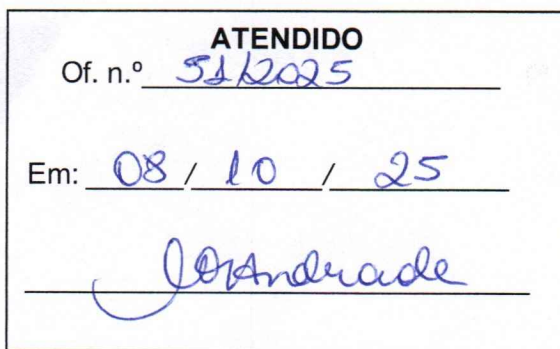 ATENDIDO
Of. n.º 51/2025
Em: 08 / 10 / 25
Andrade